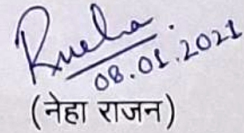 08.01.2021
(नेहा राजन)